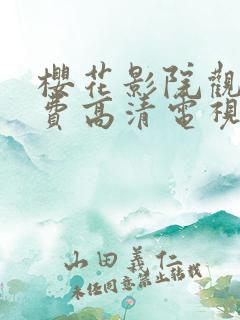 櫻花影院觀
費高清電視
山田義仁
未经同意禁止转载